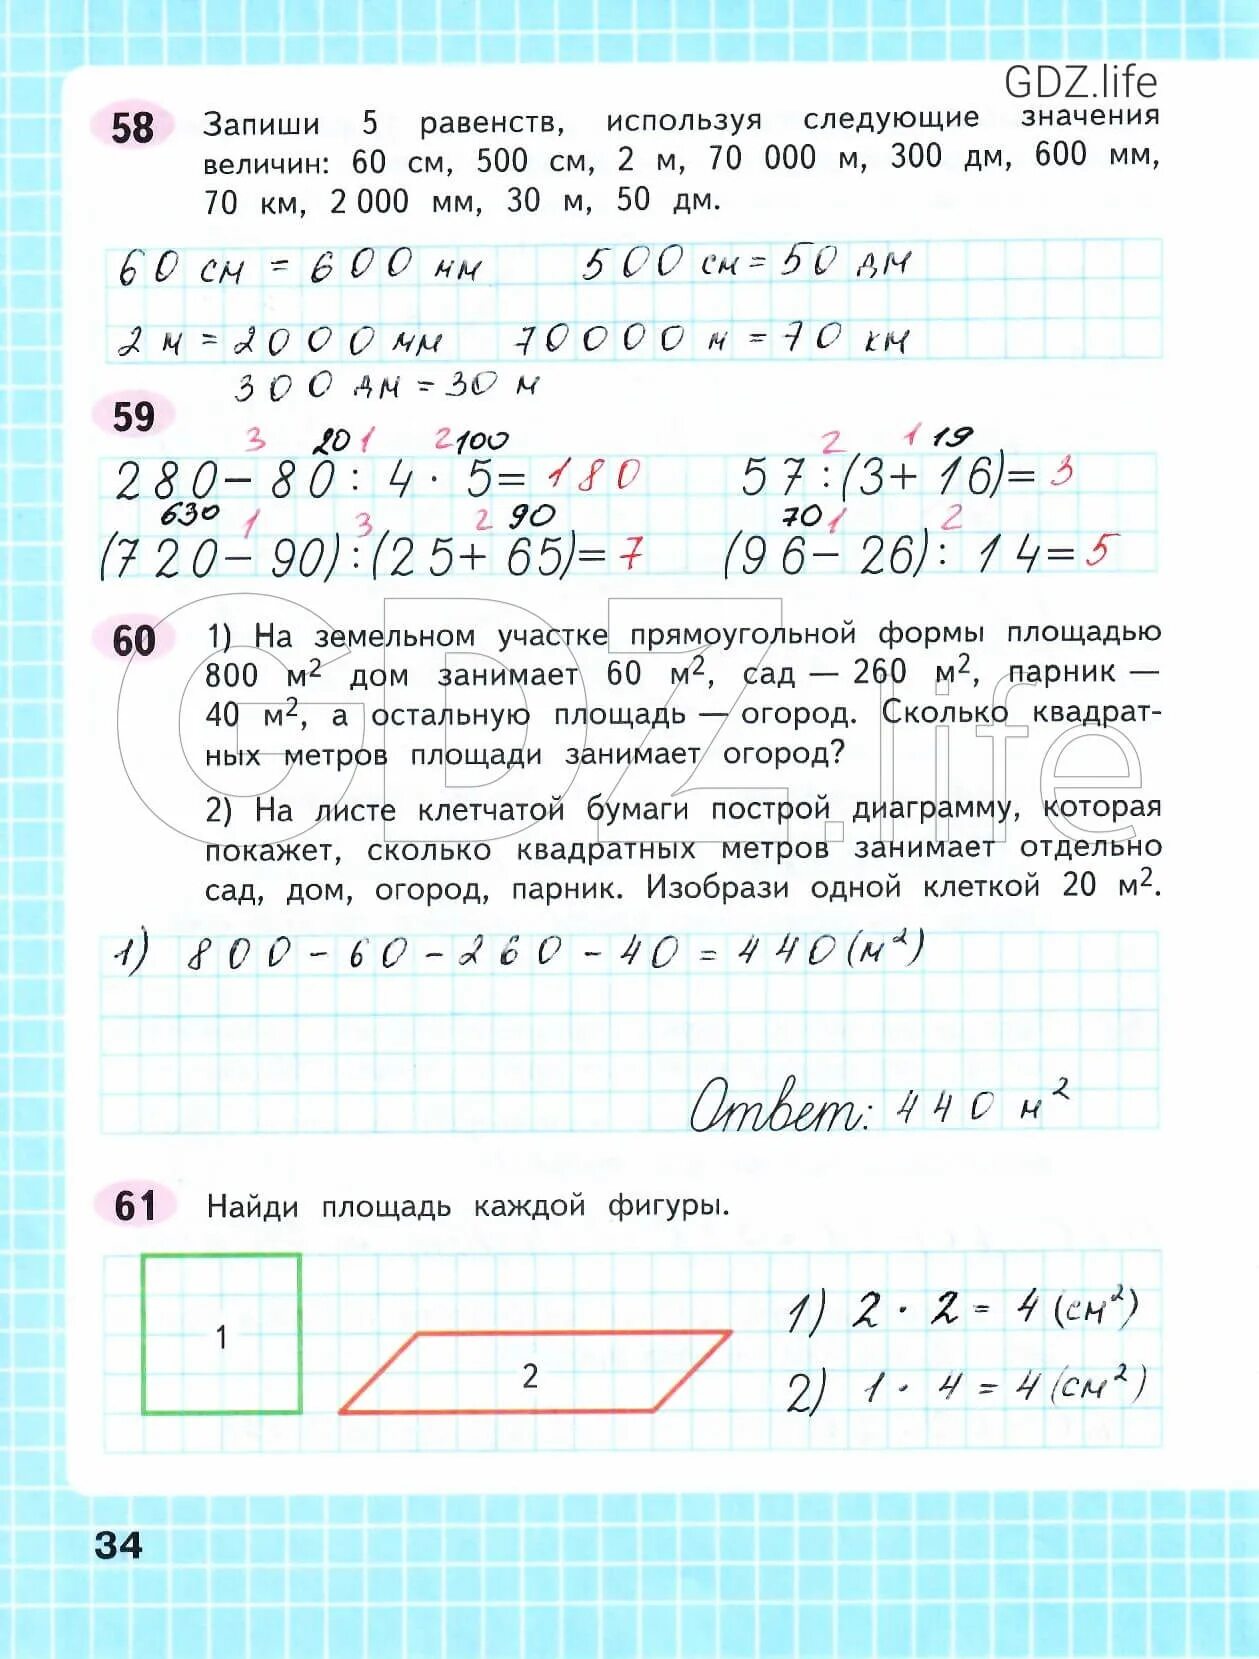 GDZ.life
58 Запиши 5 равенств, используя следующие значения
величин: 60 см, 500 см, 2 м, 70 000 м, 300 дм, 600 мм,
70 км, 2 000 мм, 30 м, 50 дм.
60 см = 600 мм 500 см = 50 дм
2 м = 2000 мм 70000 м = 70 км
300 дм = 30 м
59
3 20 1 2 100 2 1 19
280 - 80 : 4 · 5 = 180 57 : (3 + 16) = 3
630 1 3 2 90 70 1 2
(720 - 90) : (25 + 65) = 7 (96 - 26) : 14 = 5
60 1) На земельном участке прямоугольной формы площадью
800 м² дом занимает 60 м², сад — 260 м², парник —
40 м², а остальную площадь — огород. Сколько квадрат-
ных метров площади занимает огород?
2) На листе клетчатой бумаги построй диаграмму, которая
покажет, сколько квадратных метров занимает отдельно
сад, дом, огород, парник. Изобрази одной клеткой 20 м².
1) 800 - 60 - 260 - 40 = 440 (м²)
Ответ: 440 м²
GDZ.life
61 Найди площадь каждой фигуры.
1
2
1) 2 · 2 = 4 (см²)
2) 1 · 4 = 4 (см²)
34